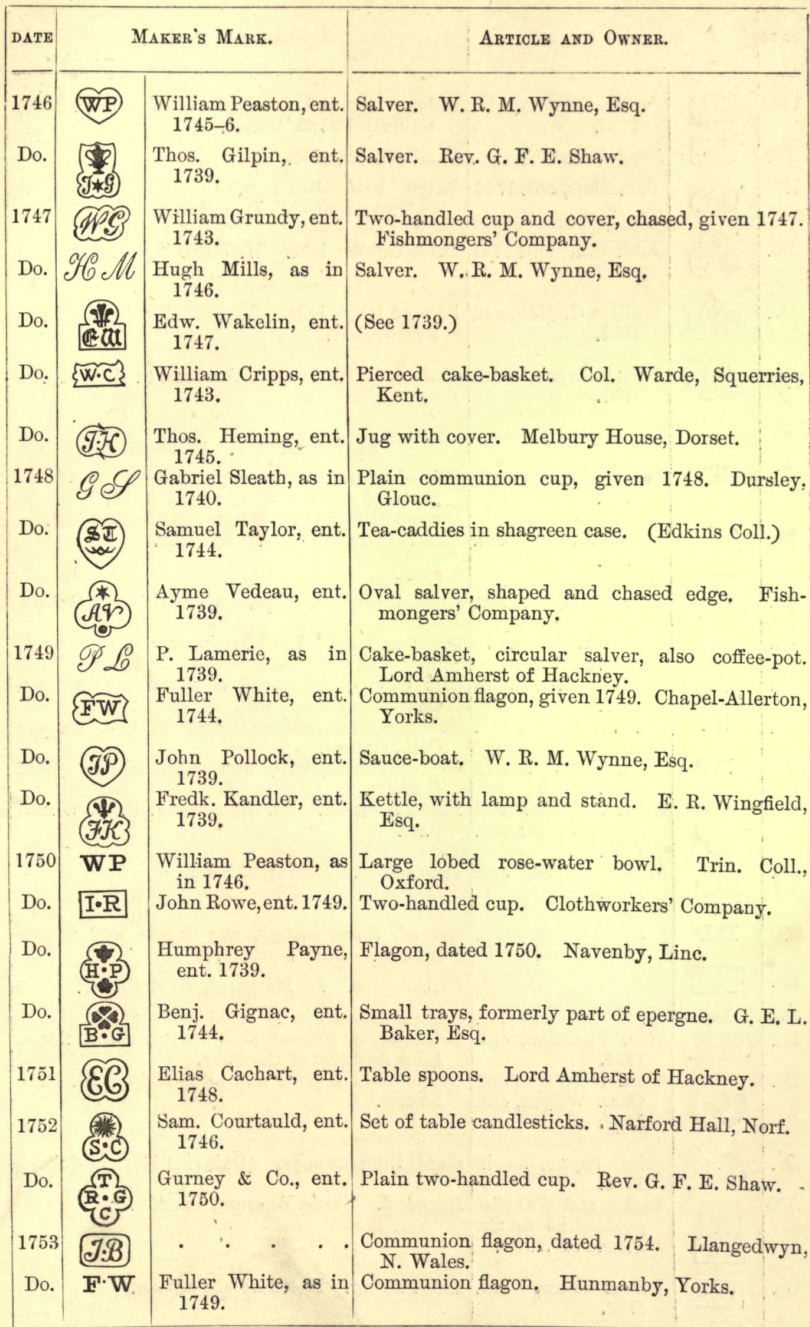 DATE MAKER'S MARK. ARTICLE AND OWNER.
1746 WP William Peaston, ent. Salver. W. R. M. Wynne, Esq.
1745–6.
Do. I*G Thos. Gilpin, ent. Salver. Rev. G. F. E. Shaw.
1739.
1747 WG William Grundy, ent. Two-handled cup and cover, chased, given 1747.
1743. Fishmongers' Company.
Do. H M Hugh Mills, as in Salver. W. R. M. Wynne, Esq.
1746.
Do. EW Edw. Wakelin, ent. (See 1739.)
1747.
Do. W·C William Cripps, ent. Pierced cake-basket. Col. Warde, Squerries,
1743. Kent.
Do. TH Thos. Heming, ent. Jug with cover. Melbury House, Dorset.
1745.
1748 G S Gabriel Sleath, as in Plain communion cup, given 1748. Dursley,
1740. Glouc.
Do. ST Samuel Taylor, ent. Tea-caddies in shagreen case. (Edkins Coll.)
1744.
Do. AV Ayme Vedeau, ent. Oval salver, shaped and chased edge. Fish-
1739. mongers' Company.
1749 P L P. Lamerie, as in Cake-basket, circular salver, also coffee-pot.
1739. Lord Amherst of Hackney.
Do. FW Fuller White, ent. Communion flagon, given 1749. Chapel-Allerton,
1744. Yorks.
Do. IP John Pollock, ent. Sauce-boat. W. R. M. Wynne, Esq.
1739.
Do. FK Fredk. Kandler, ent. Kettle, with lamp and stand. E. R. Wingfield,
1739. Esq.
1750 WP William Peaston, as Large lobed rose-water bowl. Trin. Coll.,
in 1746. Oxford.
Do. I·R John Rowe, ent. 1749. Two-handled cup. Clothworkers' Company.
Do. H·P Humphrey Payne, Flagon, dated 1750. Navenby, Linc.
ent. 1739.
Do. B·G Benj. Gignac, ent. Small trays, formerly part of epergne. G. E. L.
1744. Baker, Esq.
1751 EC Elias Cachart, ent. Table spoons. Lord Amherst of Hackney.
1748.
1752 S·C Sam. Courtauld, ent. Set of table candlesticks. Narford Hall, Norf.
1746.
Do. T R·G C Gurney & Co., ent. Plain two-handled cup. Rev. G. F. E. Shaw.
1750.
1753 I·B . . . . . Communion flagon, dated 1754. Llangedwyn,
N. Wales.
Do. F·W Fuller White, as in Communion flagon. Hunmanby, Yorks.
1749.